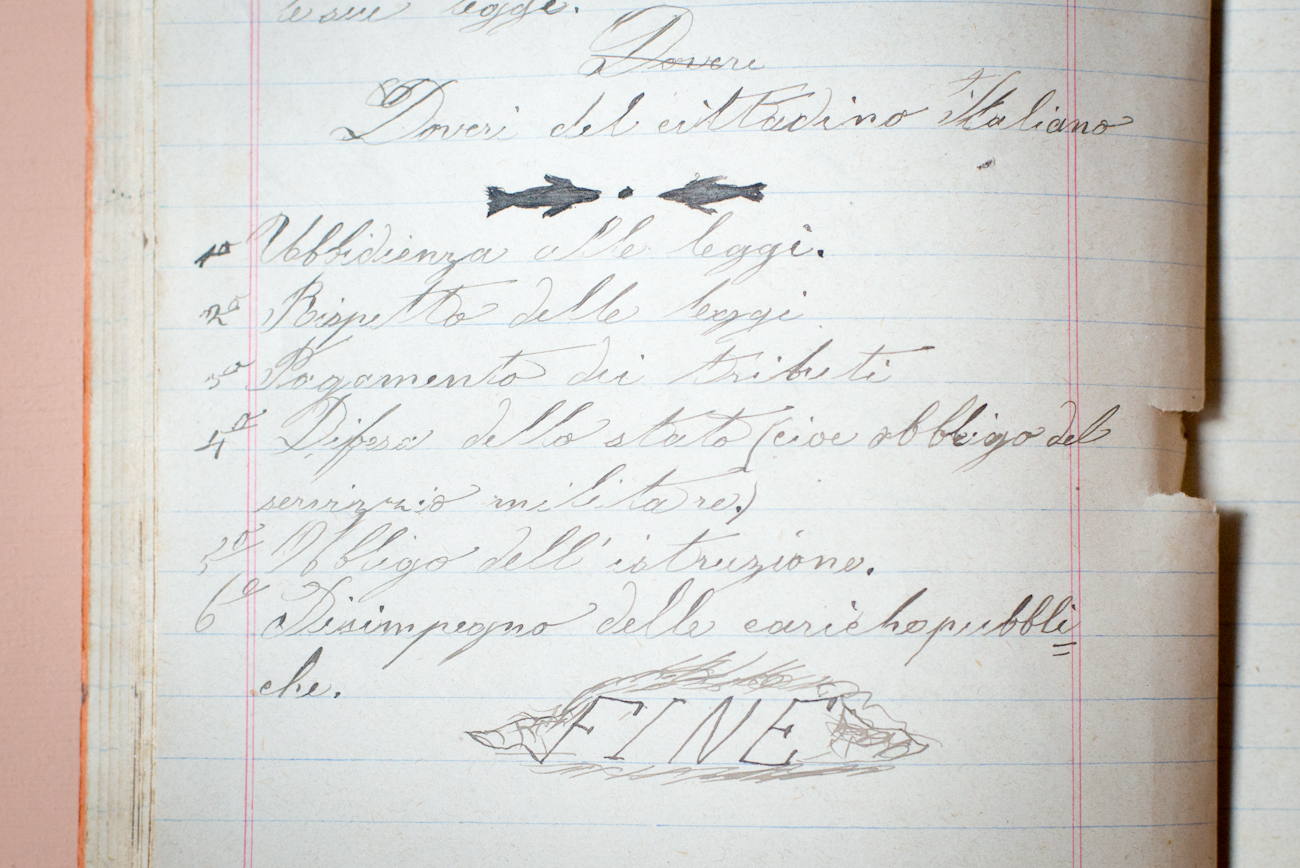 le sue leggi.
Dovere
Doveri del cittadino italiano
1º Ubbidienza alle leggi.
2º Rispetto delle leggi
3º Pagamento dei tributi
4º Difesa dello stato (cioe obbligo del
servizzio militare.)
5º Obbligo dell' istruzione.
6º Disimpegno delle cariche pubbli
che.
FINE